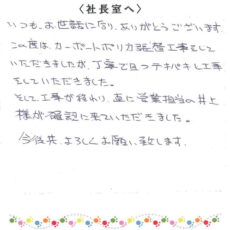 〈社長室へ〉
いつも、お世話になり、ありがとうございます。
この度は、カーポートポリカ張替工事をして
いただきましたが、丁寧で且つテキパキと工事
をしていただきました。
そして、工事が終わり、直に営業担当の井上
様が確認に来ていただきました。
今後共、よろしくお願い致します。